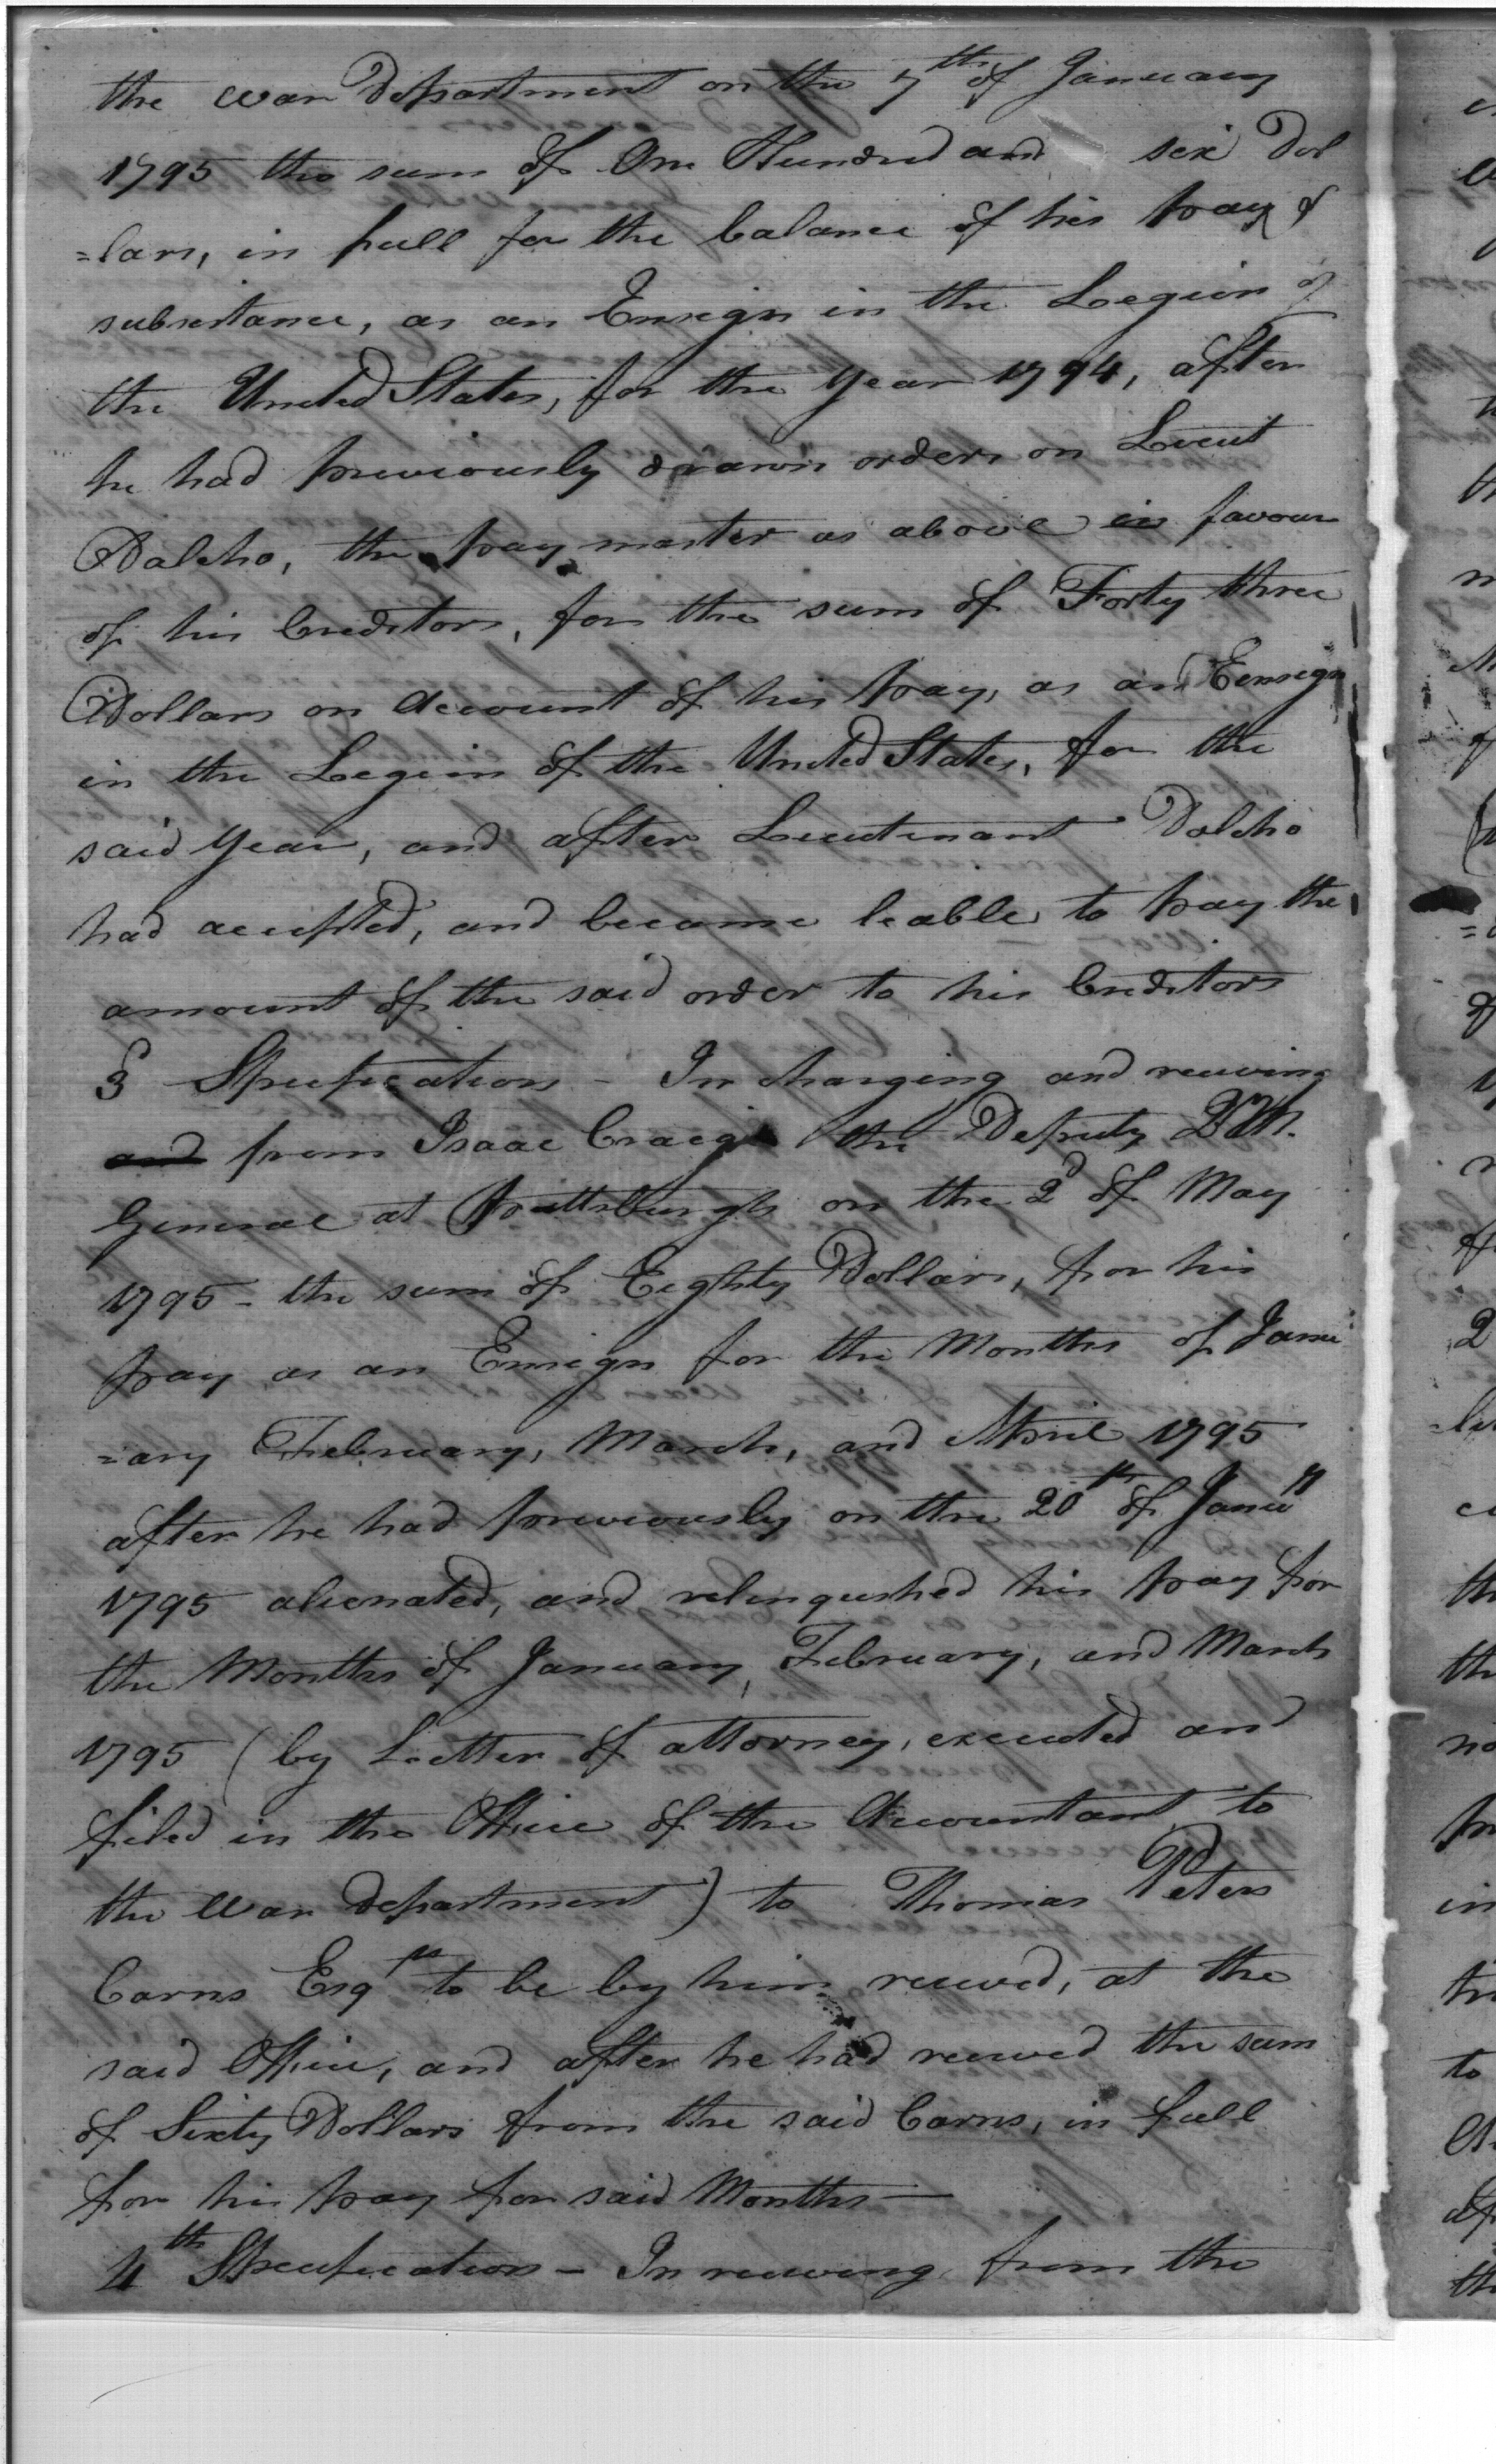 the war Department on the 7th of January
1795 the sum of One Hundred and six Dol
=lars, in full for the balance of his pay &
subsistance, as an Ensign in the Legion of
the United States, for the Year 1794, after
he had previously drawn orders on Lieut
Dalcho, the paymaster as above in favour
of his Creditors, for the sum of Forty three
Dollars on Account of his pay, as an Eensign
in the Legion of the United States, for the
said Year, and after Lieutenant Dalcho
had accepted, and became leable to pay the
amount of the said order to his Creditors
3d Specification - In charging and receiving
and from Isaac Craig the Deputy Q M.
General at Pittsburgh on the 2d of May
1795 - the sum of Eighty Dollars, for his
pay as an Ensign for the Months of Janu
=ary February, March, and April 1795
after he had previously on the 20th of Janury
1795 alienated, and relinqushed his pay for
the Months of January, February, and March
1795 (by Letter of attorney, executed and
filed in the Office of the Accountant to
the War Department) to Thomas Peters
Carns Esqr to be by him received, at the
said Office, and after he had received the sum
of Sixty Dollars from the said Carns, in full
for his pay for said Months—
4th Specification - In receiving from the